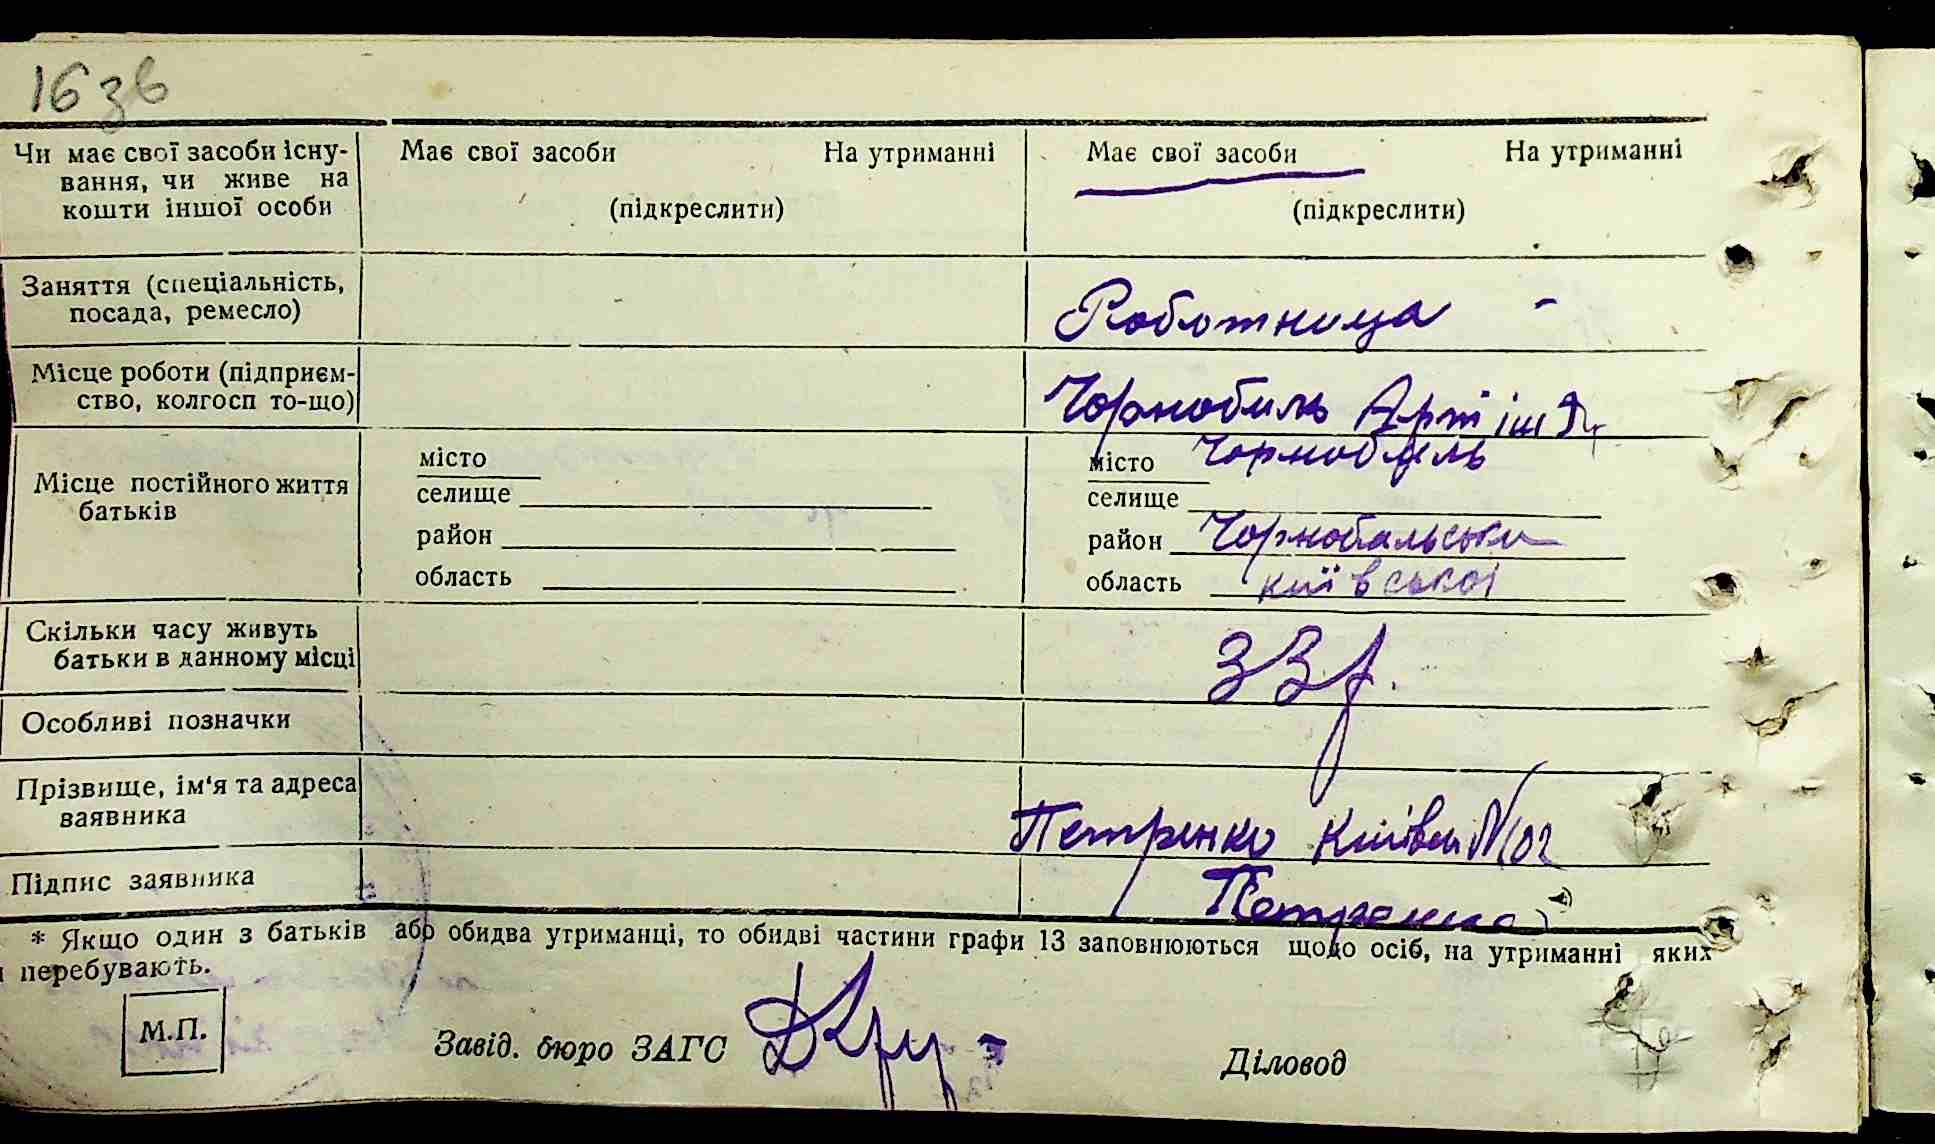 16 зв
Чи має свої засоби існу-
вання, чи живе на
кошти іншої особи
Має свої засоби На утриманні
(підкреслити)
Має свої засоби На утриманні
(підкреслити)
Заняття (спеціальність,
посада, ремесло)
Роботница
Місце роботи (підприєм-
ство, колгосп то-що)
Чорнобиль
Місце постійного життя
батьків
місто
селище
район
область
місто Чорнобиль
селище
район Чорнобильськи
область київської
Скільки часу живуть
батьки в данному місці
33 р.
Особливі позначки
Прізвище, ім'я та адреса
заявника
Петренко
Підпис заявника
Петренко
* Якщо один з батьків або обидва утриманці, то обидві частини графи 13 заповнюються щодо осіб, на утриманні яких
перебувають.
М.П.
Завід. бюро ЗАГС
Діловод